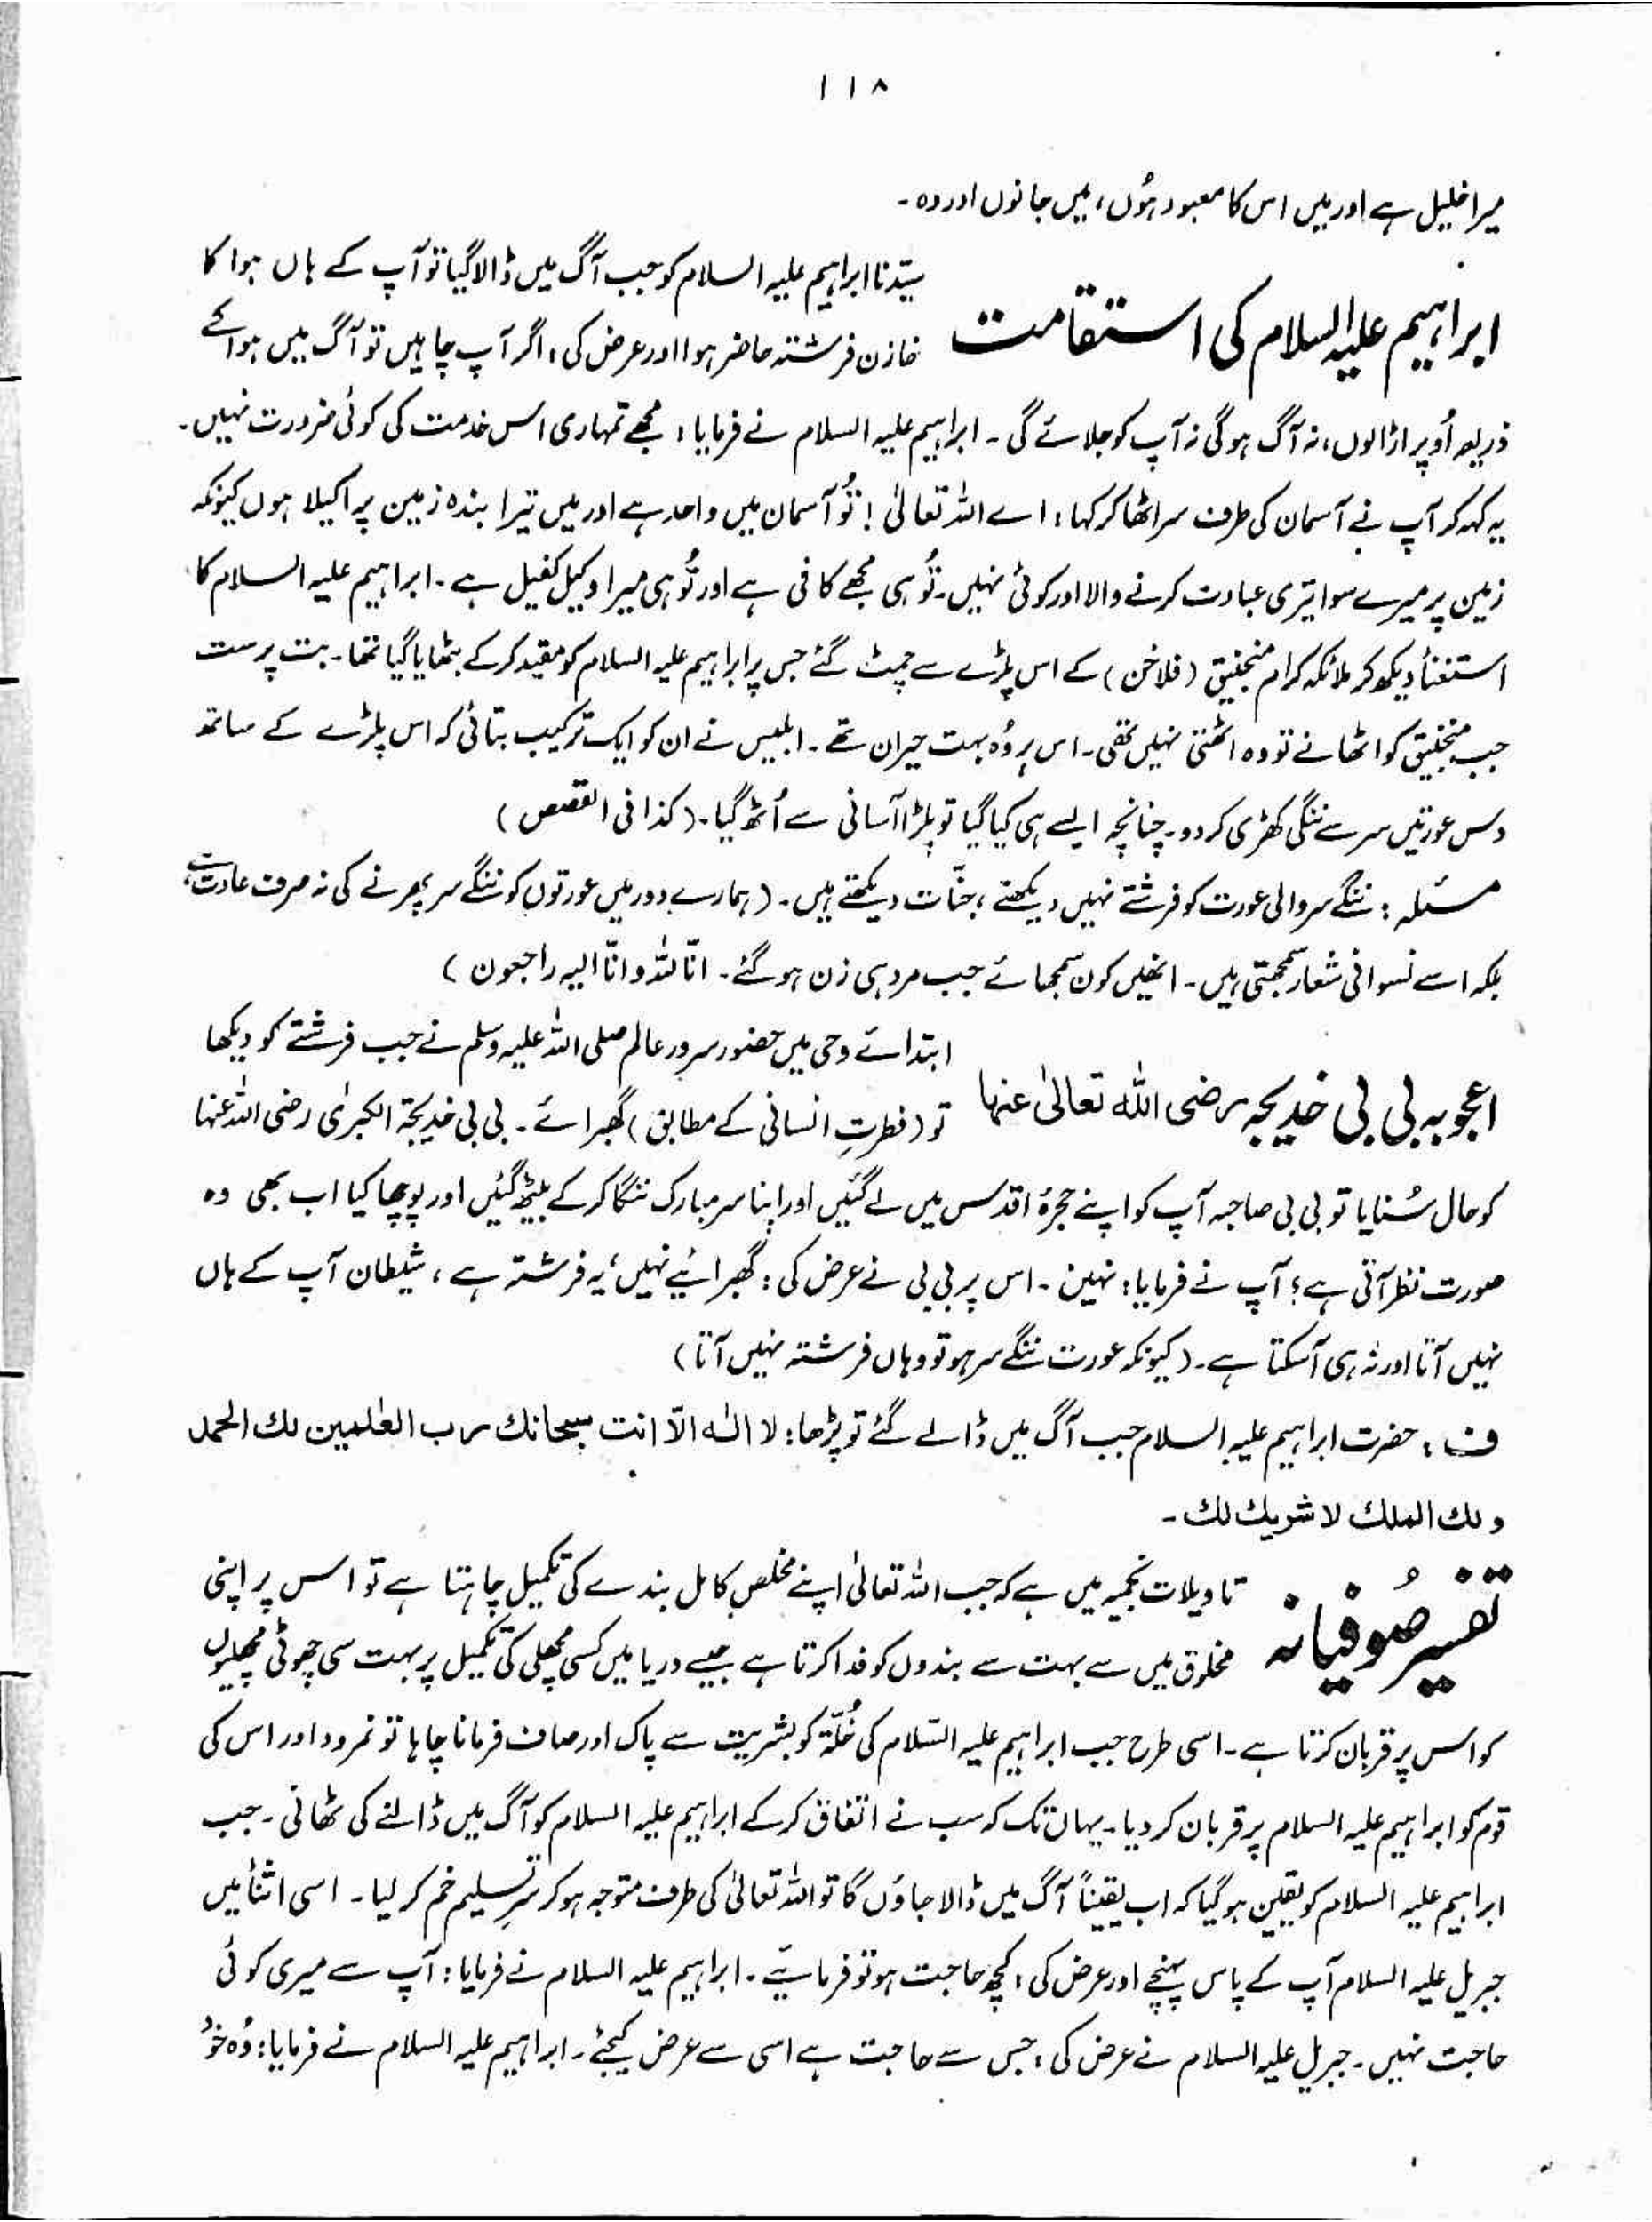 ۱۱۸
میرا خلیل ہے اور میں اس کا معبود ہُوں، میں جانوں اور وہ۔
ابراہیم علیہ السلام کی استقامت
سیّدنا ابراہیم علیہ السلام کو جب آگ میں ڈالا گیا تو آپ کے ہاں ہوا کا
خازن فرشتہ حاضر ہوا اور عرض کی، اگر آپ چاہیں تو آگ میں ہوا کے
ذریعہ اُوپر اڑا لوں، نہ آگ ہوگی نہ آپ کو جلائے گی۔ ابراہیم علیہ السلام نے فرمایا، مجھے تمہاری اس خدمت کی کوئی ضرورت نہیں۔
یہ کہہ کر آپ نے آسمان کی طرف سر اٹھا کر کہا، اے اللہ تعالیٰ! تُو آسمان میں واحد ہے اور میں تیرا بندہ زمین پر اکیلا ہوں کیونکہ
زمین پر میرے سوا تیری عبادت کرنے والا اور کوئی نہیں۔ تُو ہی مجھے کافی ہے اور تُو ہی میرا وکیل کفیل ہے۔ ابراہیم علیہ السلام کا
استغنأ دیکھ کر ملائکہ کرام منجنیق (فلاخن) کے اس پلڑے سے چمٹ گئے جس پر ابراہیم علیہ السلام کو مقید کر کے بٹھایا گیا تھا۔ بت پرست
جب منجنیق کو اٹھانے تو وہ اٹھتی نہیں تھی۔ اس پر وُہ بہت حیران تھے۔ ابلیس نے ان کو ایک ترکیب بتائی کہ اس پلڑے کے ساتھ
دس عورتیں سر سے ننگی کھڑی کر دو۔ چنانچہ ایسے ہی کیا گیا تو پلڑا آسانی سے اُٹھ گیا۔ (کذا فی القصص)
مسئلہ: ننگے سر والی عورت کو فرشتے نہیں دیکھتے، جنّات دیکھتے ہیں۔ (ہمارے دور میں عورتوں کو ننگے سر پھرنے کی نہ صرف عادت ہے،
بلکہ اسے نسوانی شعار سمجھتی ہیں۔ انھیں کون سمجھائے جب مرد ہی زن ہو گئے۔ انّا للہ وانّا الیہ راجعون)
اعجوبہ بی بی خدیجہ رضی اللہ تعالیٰ عنہا
ابتدائے وحی میں حضور سرور عالم صلی اللہ علیہ وسلم نے جب فرشتے کو دیکھا
تو (فطرتِ انسانی کے مطابق) گھبرائے۔ بی بی خدیجۃ الکبرٰی رضی اللہ عنہا
کو حال سُنایا تو بی بی صاحبہ آپ کو اپنے حجرۂ اقدس میں لے گئیں اور اپنا سر مبارک ننگا کر کے بیٹھ گئیں اور پوچھا کیا اب بھی وہ
صورت نظر آتی ہے؟ آپ نے فرمایا: نہیں۔ اس پر بی بی نے عرض کی: گھبرائیے نہیں، یہ فرشتہ ہے، شیطان آپ کے ہاں
نہیں آتا اور نہ ہی آ سکتا ہے۔ (کیونکہ عورت ننگے سر ہو تو وہاں فرشتہ نہیں آتا)
ف: حضرت ابراہیم علیہ السلام جب آگ میں ڈالے گئے تو پڑھا: لا الٰہ الّا انت سبحانك رب العٰلمین لك الحمد
ولك الملك لا شریك لك۔
تفسیر صُوفیانہ
تاویلات نجمیہ میں ہے کہ جب اللہ تعالیٰ اپنے مخلص کامل بندے کی تکمیل چاہتا ہے تو اس پر اپنی
مخلوق میں سے بہت سے بندوں کو فدا کرتا ہے جیسے دریا میں کسی مچھلی کی تکمیل پر بہت سی چھوٹی مچھلیوں
کو اس پر قربان کرتا ہے۔ اسی طرح جب ابراہیم علیہ السّلام کی خُلّۃ کو بشریت سے پاک اور صاف فرمانا چاہا تو نمرود اور اس کی
قوم کو ابراہیم علیہ السلام پر قربان کر دیا۔ یہاں تک کہ سب نے اتفاق کر کے ابراہیم علیہ السلام کو آگ میں ڈالنے کی ٹھانی۔ جب
ابراہیم علیہ السلام کو یقین ہو گیا کہ اب یقیناً آگ میں ڈالا جاؤں گا تو اللہ تعالیٰ کی طرف متوجہ ہو کر سرِتسلیم خم کر لیا۔ اسی اثنأ میں
جبریل علیہ السلام آپ کے پاس پہنچے اور عرض کی، کچھ حاجت ہو تو فرمائیے۔ ابراہیم علیہ السلام نے فرمایا: آپ سے میری کوئی
حاجت نہیں۔ جبریل علیہ السلام نے عرض کی، جس سے حاجت ہے اسی سے عرض کیجئے۔ ابراہیم علیہ السلام نے فرمایا: وُہ خود